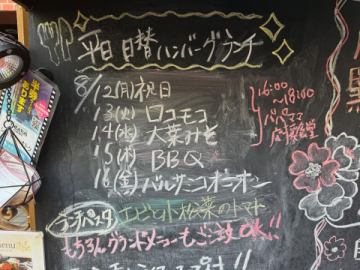 平日 日替ハンバーグランチ
8/12(月)祝日
13(火) ロコモコ
14(水) 大葉みそ
15(木) BBQ
16(金) バルサミコオニオン
16:00
~18:00
パパママ
応援食堂
ランチパスタ エビと小松菜のトマト
もちろんグランドメニューもご注文OK!!
menu